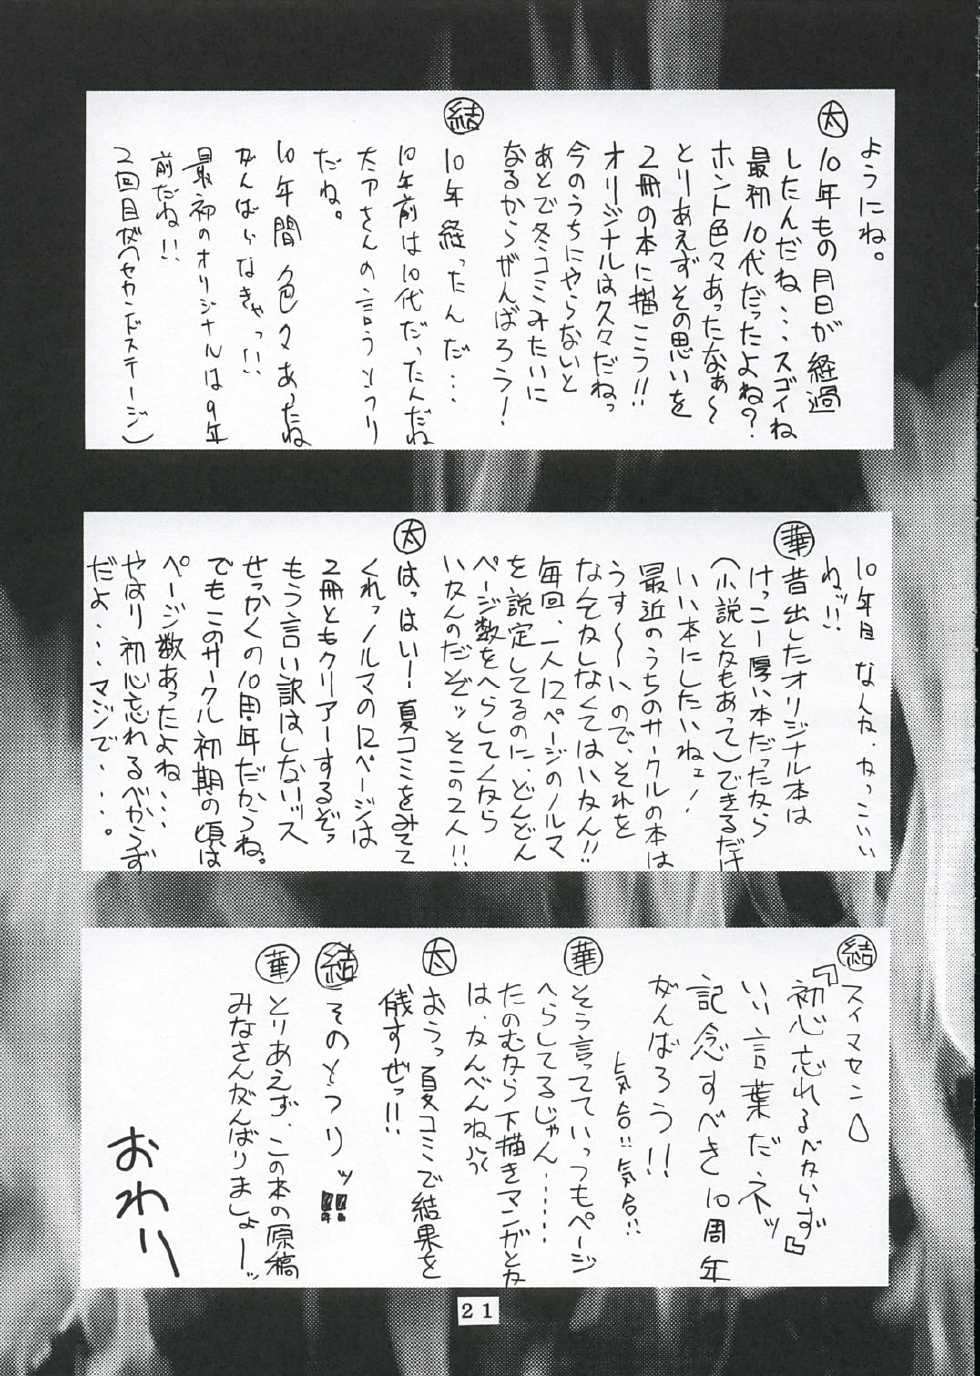 ようにね。
太 10年もの月日が経過
したんだね...スゴイね
最初10代だったよね?
ホント色々あったなぁ〜
とりあえずその思いを
2冊の本に描こう!!
オリジナルは久々だねっ
今のうちにやらないと
あとで冬コミみたいに
なるからがんばろう!
結 10年経ったんだ...
10年前は10代だったんだね
太アさんの言うとうり
だね。
10年間色々あったね
がんばらなきゃっ!!
最初のオリジナルは9年
前だね!!
2回目がセカンドステージ)
10年目なんな、カッこいい
ねッ!!
華 昔出したオリジナル本は
けっこー厚い本だったなら
(小説とかもあって)できるだけ
いい本にしたいねェ!
最近のうちのサークルの本は
うす〜いので、それを
なんでかしなくてはいかん!!
毎回、一人12ページのノルマ
を説定してるのに、どんどん
ページ数をへらしてくなら
いかんのだぞッ そこの2人!!
太 はっはい!夏コミをみてて
くれっノルマの12ページは
2冊ともクリアーするぞっ
もう言い訳はしないッス
せっかくの10周年だからね。
でもこのサークル初期の頃は
ページ数あったよね...
やはり初心忘れるべからず
だよ....マジで....。
結 スイマセン
『初心忘れるべからず』
いい言葉だネッ
記念すべき10周年
がんばろう!!
気合!!気合!!
華 そう言ってていっつもページ
へらしてるじゃん......
たのむなら下描きマンガとか
は、かんべんね
太 おうっ夏コミで結果を
残すぜっ!!
結 そのとうりッ!!
華 とりあえず、この本の原稿
みなさんがんばりましょーッ
おわり
21